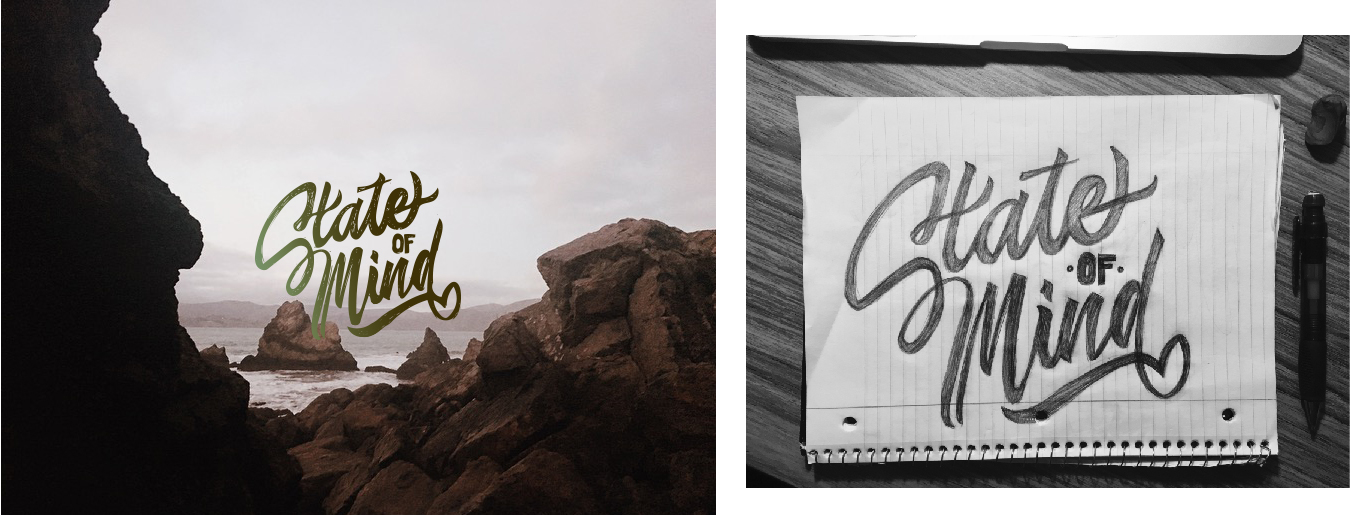 State
OF
Mind
State
·OF·
Mind